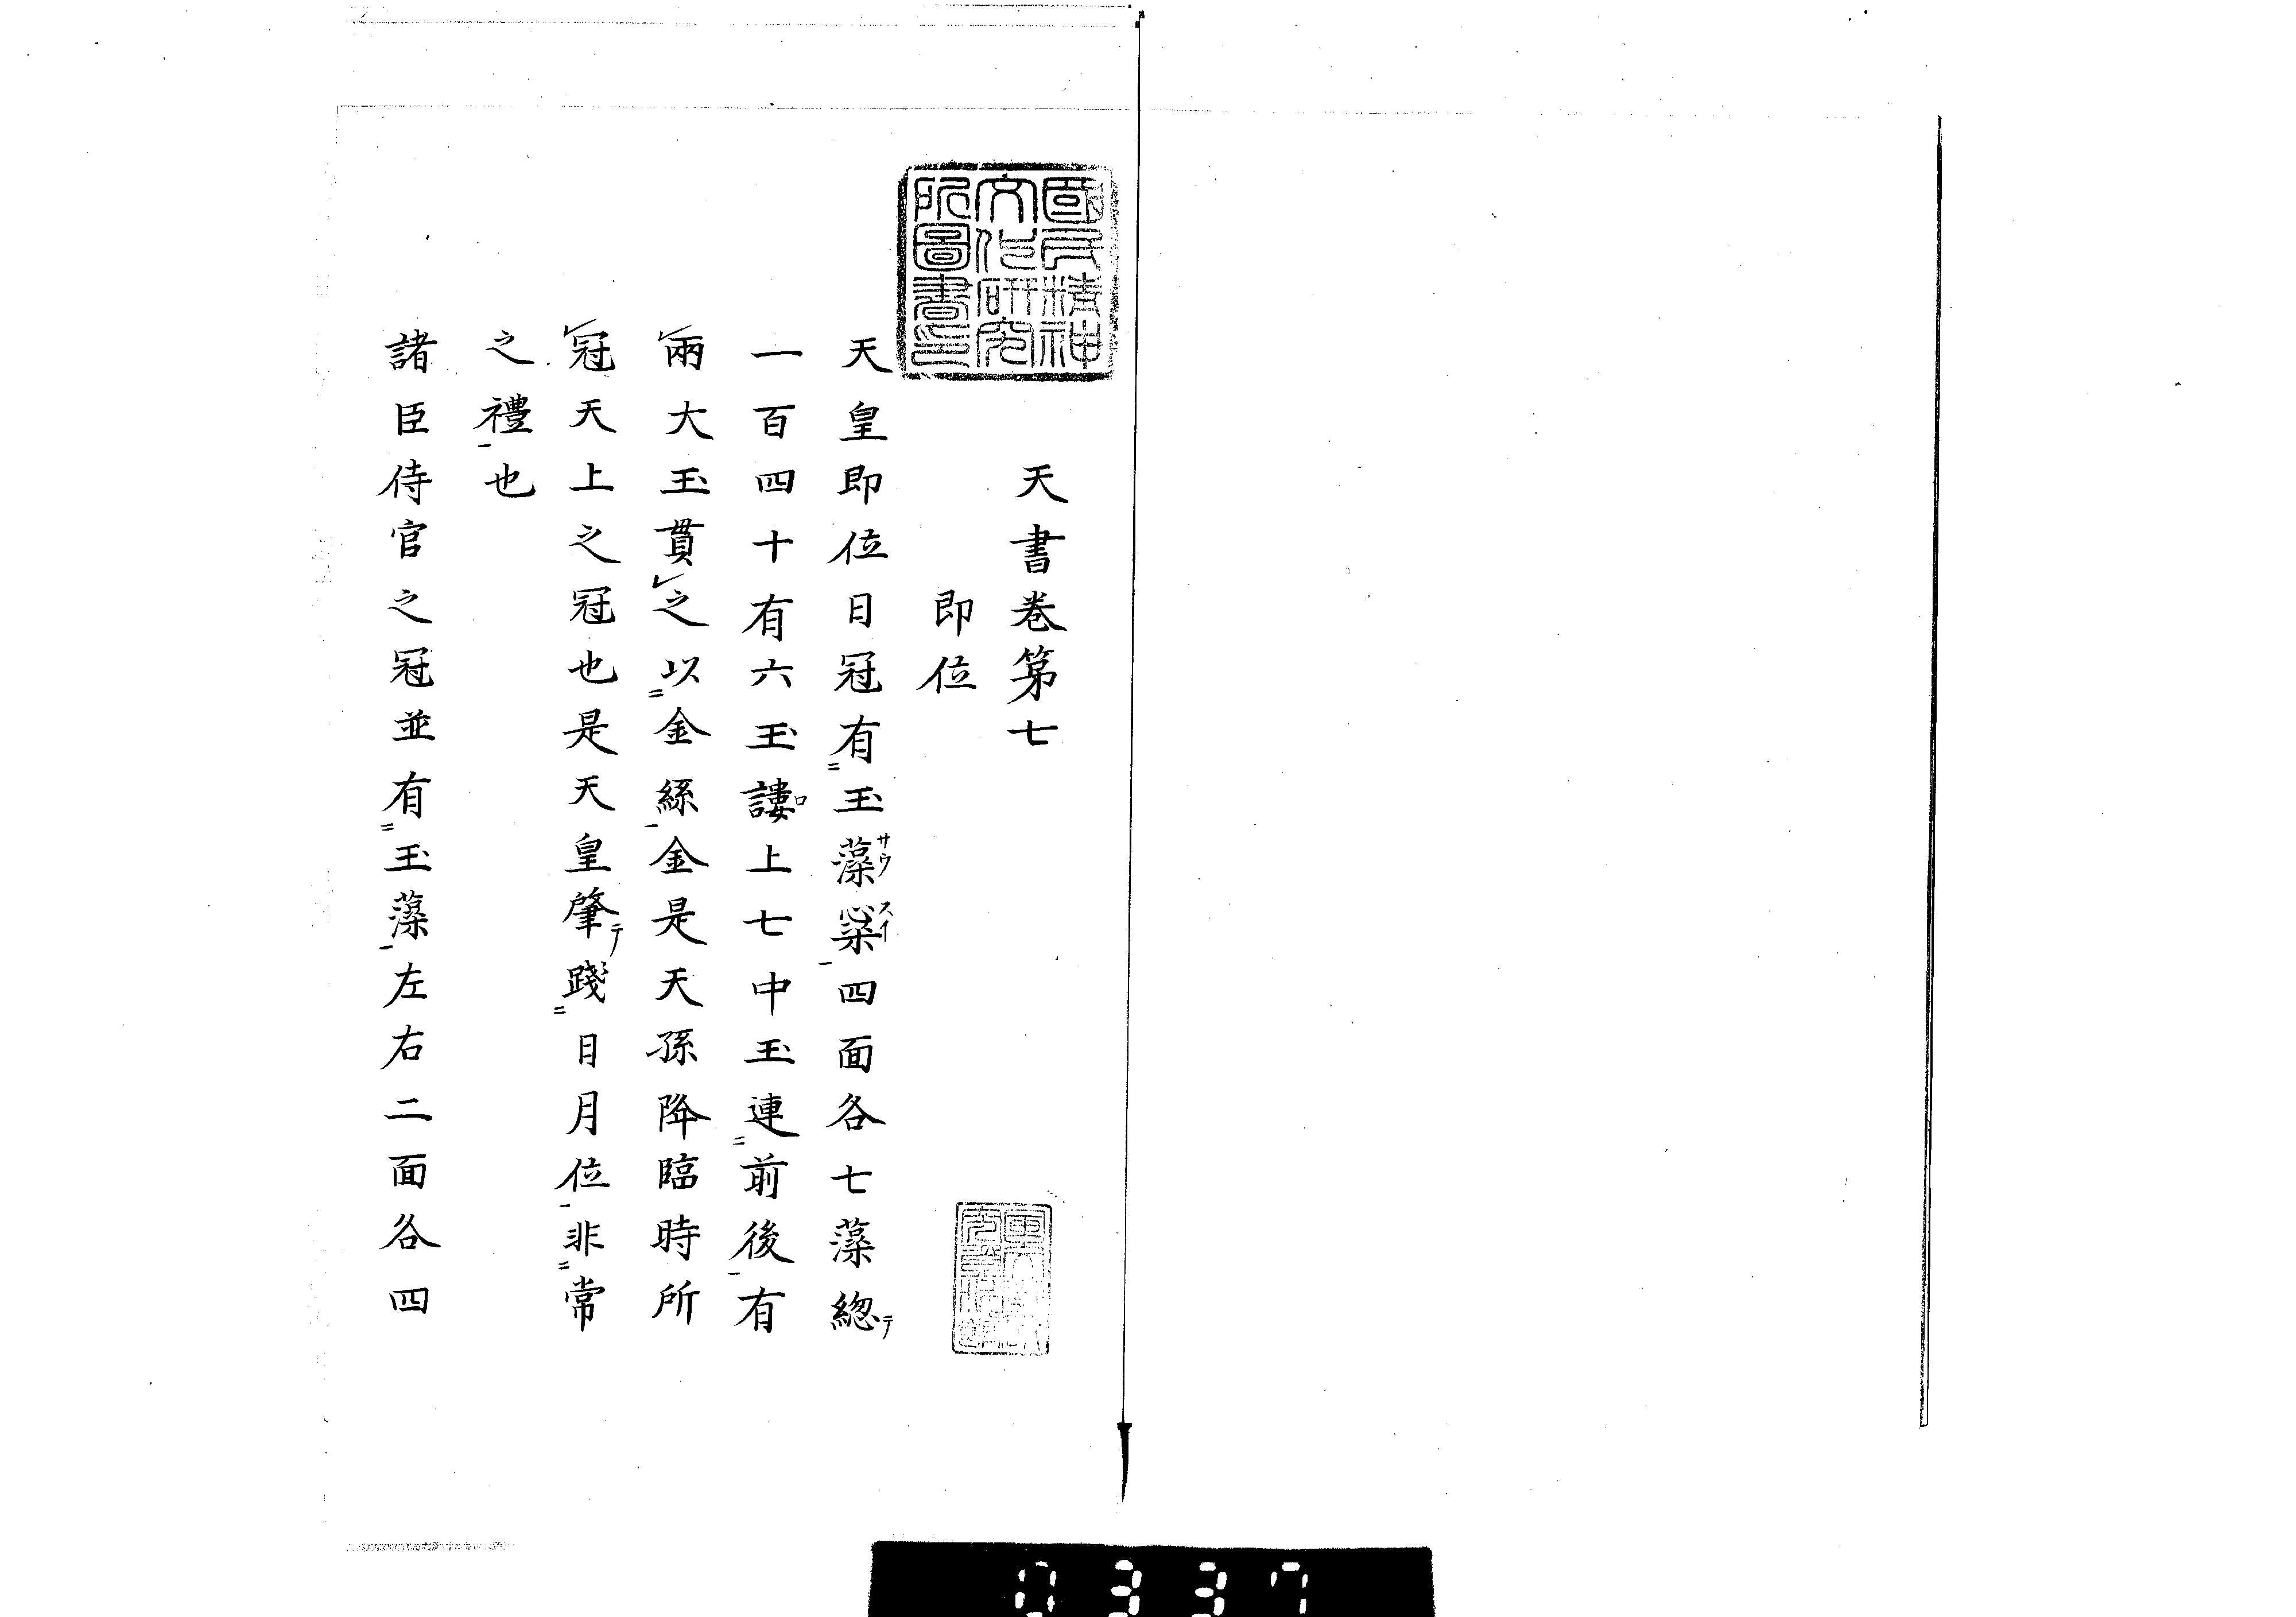 國民精神
文化研究
所圖書印
天書巻第七
即位
天皇即位日冠有玉藻橤四面各七藻總
一百四十有六玉謱上七中玉連前後有
兩大玉貫之以金絲金是天孫降臨時所
冠天上之冠也是天皇肇踐日月位非常
之禮也
諸臣侍官之冠並有玉藻左右二面各四
0337